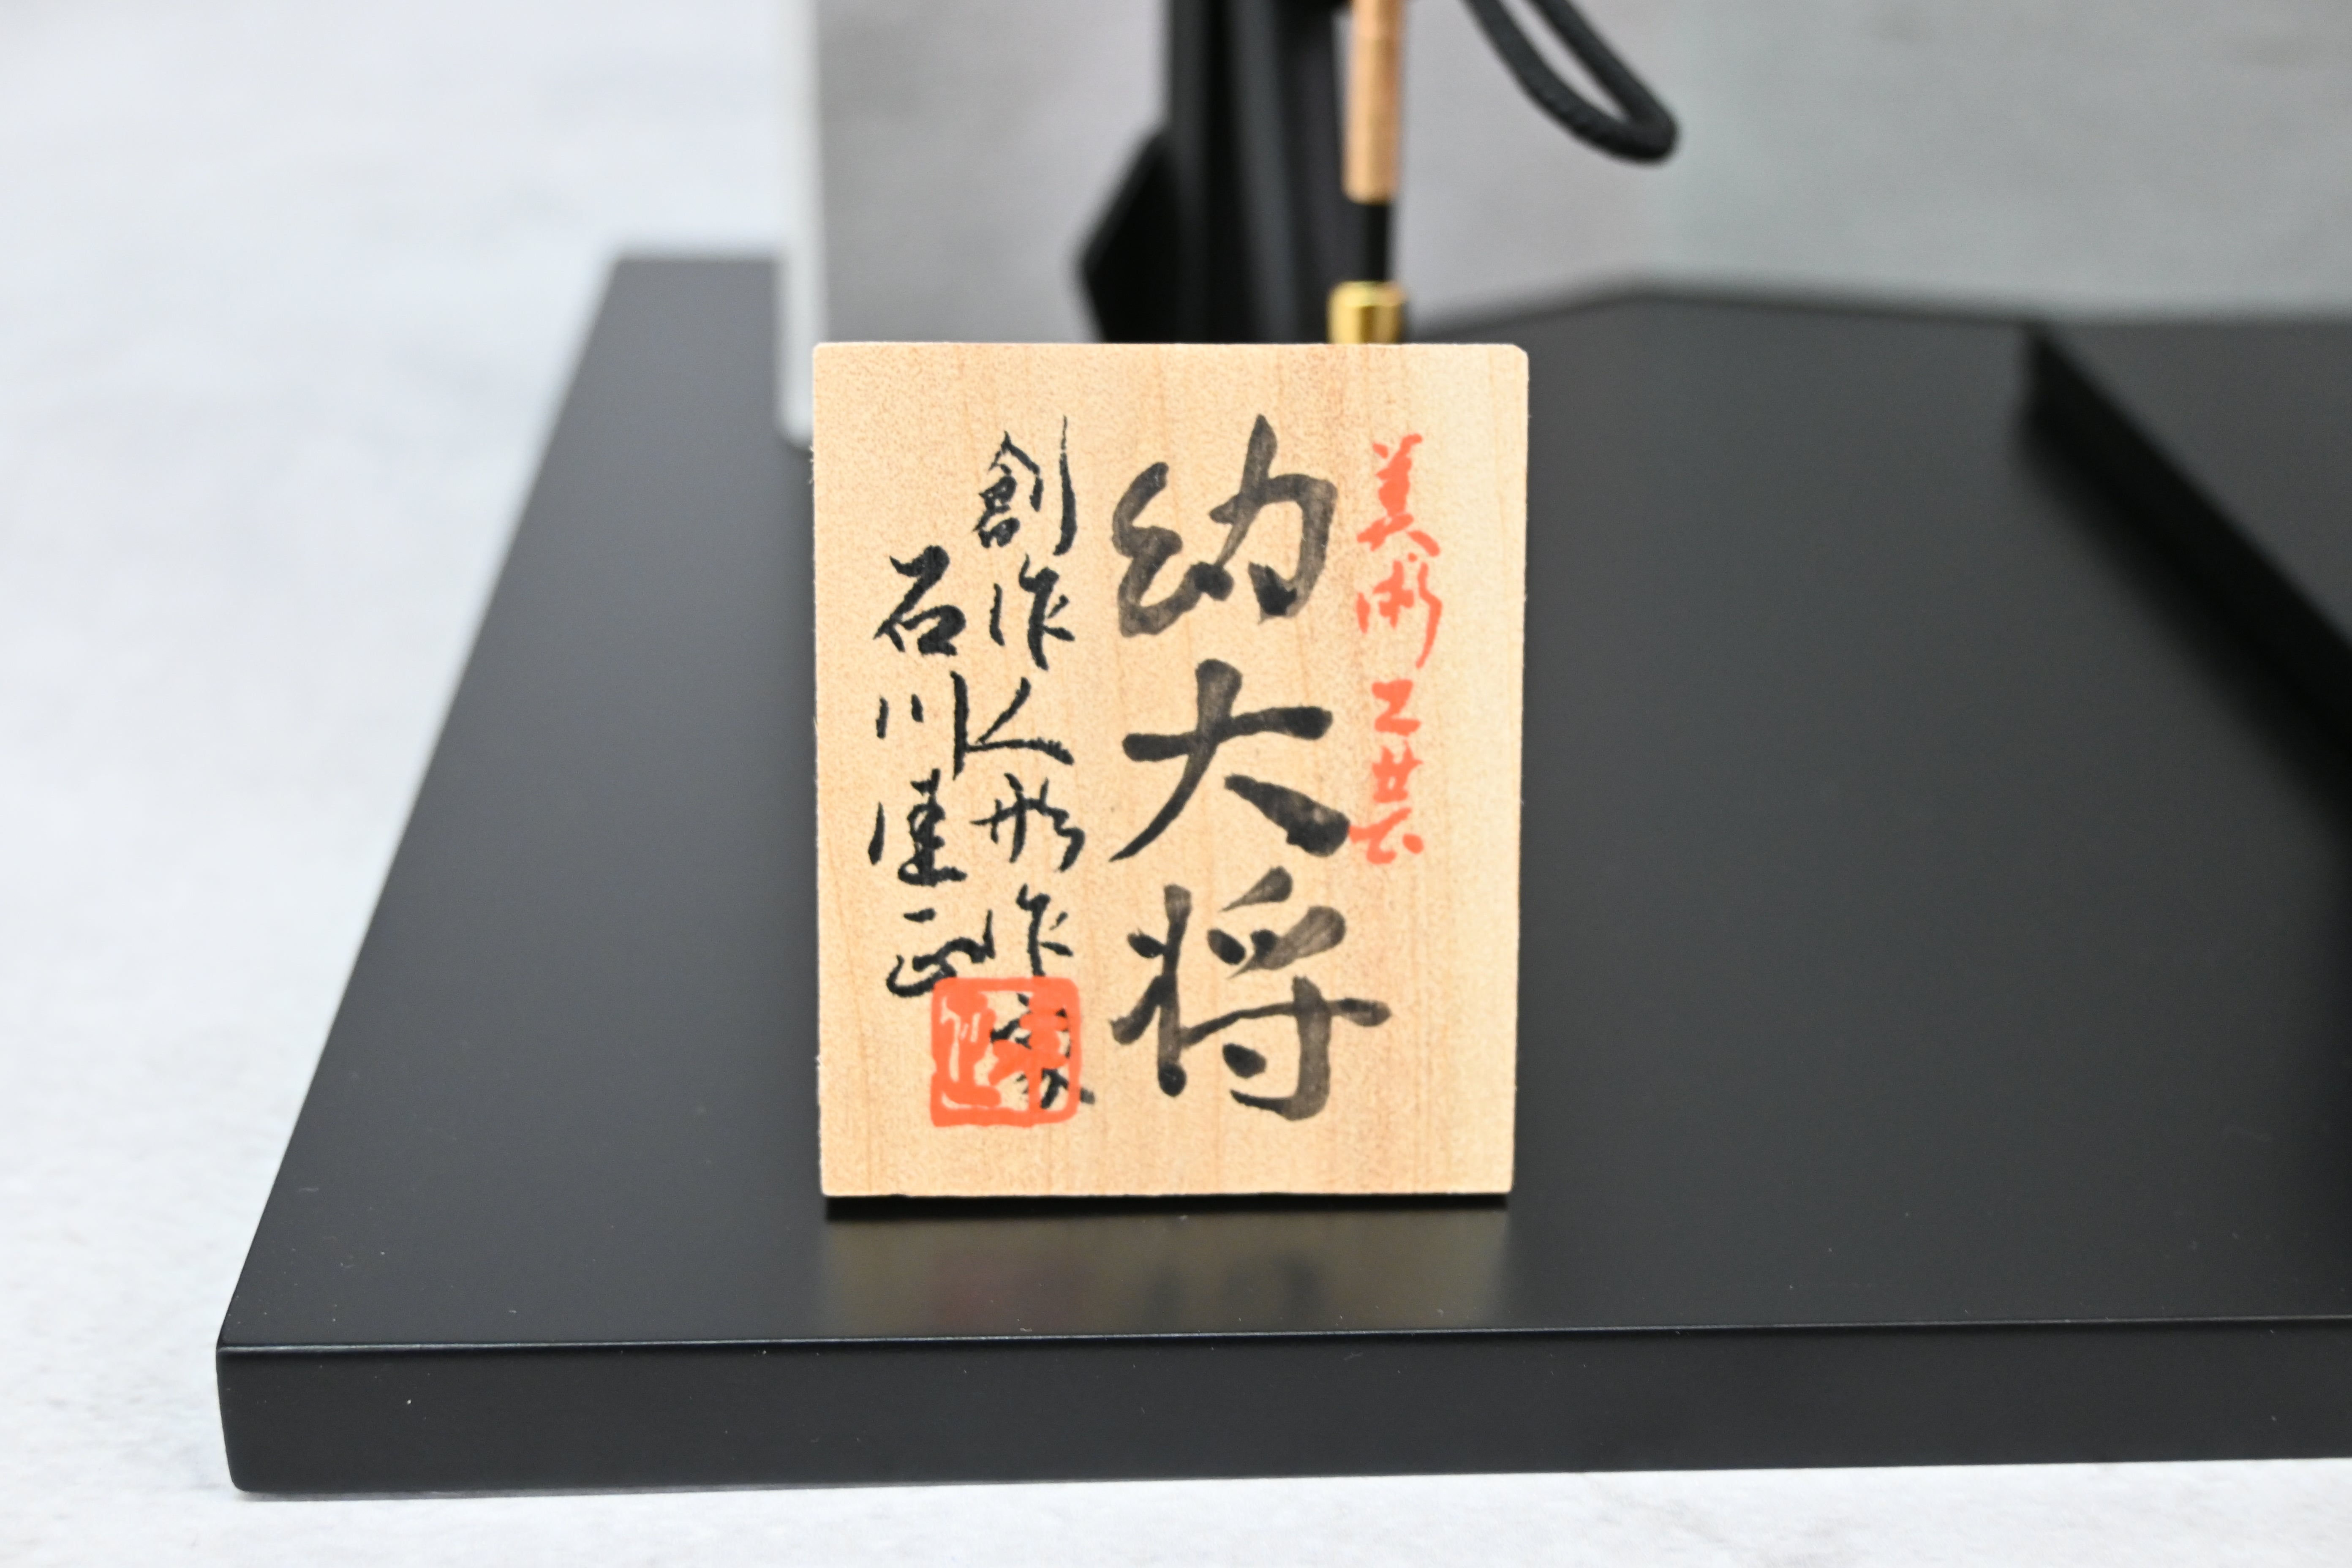 美術工芸
幼大将
創作人形作家
石川佳正